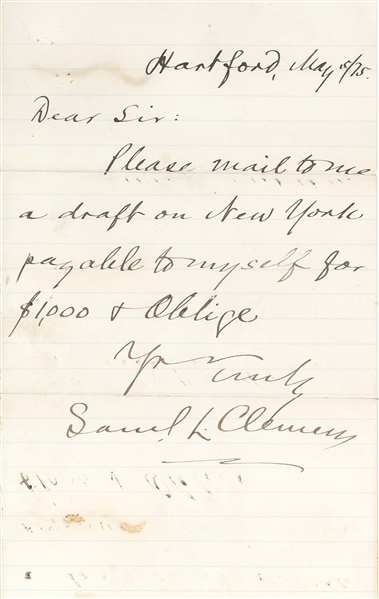 Hartford, May /75.
Dear Sir:
Please mail to me
a draft on New York
payable to myself for
$1,000 & Oblige
Yr Truly
Saml. L. Clemens